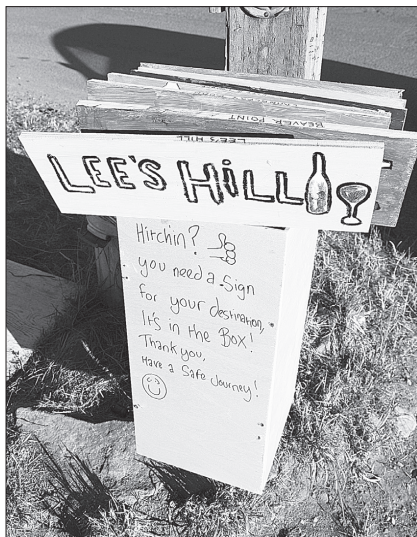 BEAVER POINT
LEE'S HILL
LEE'S HiLL
Hitchin?
you need a Sign
for your destination,
It's in the Box!
Thank you,
Have a Safe Journey!